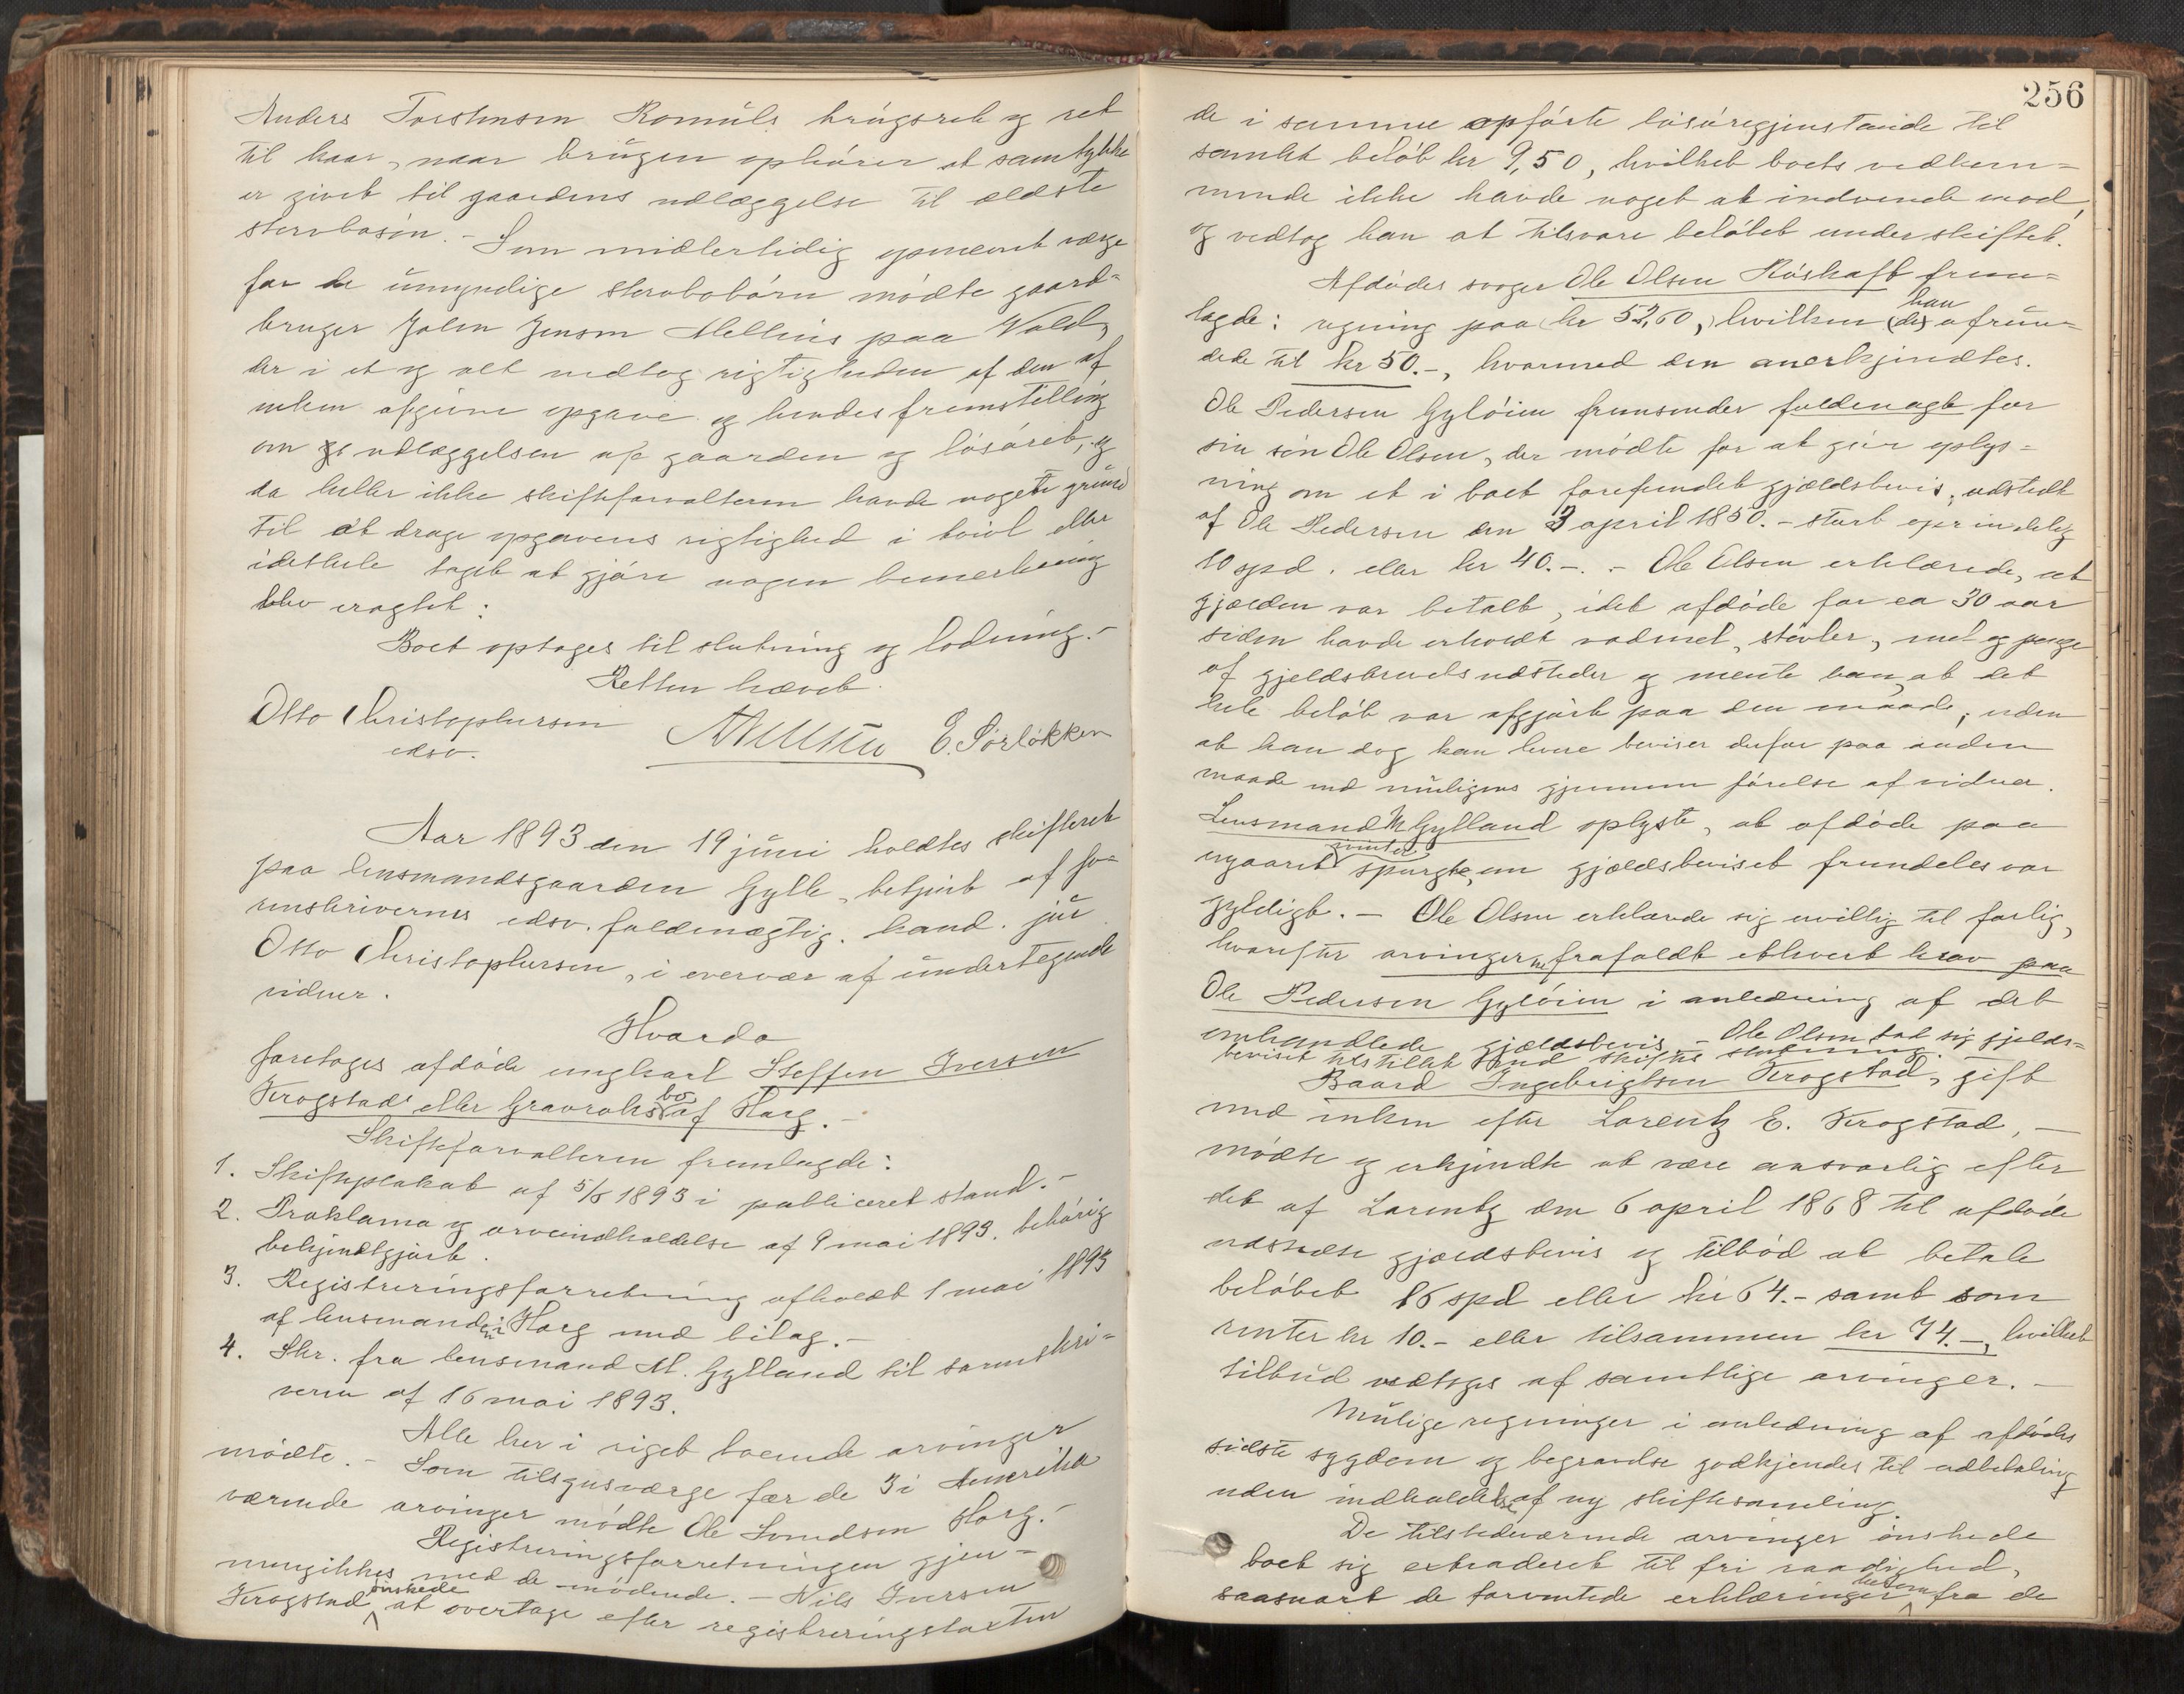 Anders Torstensen Romuls brugsret og ret
til kaar, naar brugen ophører at samtykke
er givet til gaardens udlæggelse til ældste
stervbosøn. - Som midlertidig opnævnt værge
for de umyndige stervbobørn mødte gaard-
bruger John Jensen Melhus paa Vold,
der i et og alt vedtog rigtigheden af den af
enken afgivne opgave og hendes fremstilling
om udlæggelsen af gaarden og løsøret, og
da heller ikke skifteforvalteren havde nogen grund
til at drage opgavens rigtighed i tvivl eller
idethele taget at gjøre nogen bemerkning
blev eragtet:
Boet optages til slutning og lodning. -
Retten hævet.
Otto Christophersen E. Sørløkken
edsv.
Aar 1893 den 19 juni holdtes skifteret
paa lensmandsgaarden Gylle, betjent af so-
renskriverens edsv. fuldmægtig, kand. jur
Otto Christophersen, i overvær af undertegnede
vidner.
Hvorda
foretoges afdøde ungkarl Steffen Iversen
Krogstad eller Gravraks bo af Horg. -
Skifteforvalteren fremlagde:
1. Skifteplakat af 5/5 1893 i publiceret stand. -
2. Proklama og arveindkaldelse af 9 mai 1893. behørig
bekjendtgjort.
3. Registreringsforretning afholdt 1 mai 1893
af lensmanden i Horg med bilag. -
4. Skr. fra lensmand M. Gylland til sorenskri-
veren af 16 mai 1893.
Alle her i riget boende arvinger
mødte. - Som tilsynsværge for de 3 i Amerika
værende arvinger mødte Ole Simdsen Horg. -
Registreringsforretningen gjen-
nemgikkes med de mødende. - Nils Iversen
Krogstad ønskede at overtage efter registreringstaxten
256
de i samme opførte løsøregjenstande til
samlet beløb kr 9,50, hvilket boets vedkom-
mende ikke havde noget at indvende mod,
og vedtog han at tilsvare beløbet under skiftet.
Afdødes svoger Ole Olsen Røskaft frem-
lagde: regning paa kr 52,60, hvilken han (de) afrun-
dede til kr 50.-, hvormed den anerkjendtes.
Ole Pedersen Gyløien fremsender fuldmagt for
sin søn Ole Olsen, der mødte for at give oplys-
ning om et i boet forefundet gjældsbevis, udstedt
af Ole Pedersen den 3 april 1850. - stort oprindelig
10 spd. eller kr 40.-. - Ole Olsen erklærede, at
gjælden var betalt, idet afdøde for ca 30 aar
siden havde erholdt vadmel, støvler, mel og penge
af gjeldsbrevets udsteder og mente han, at det
hele beløb var afgjort paa den maade, uden
at han dog kan levere beviser derfor paa anden
maade end muligens gjennem førelse af vidner.
Lensmand M Gylland oplyste, at afdøde paa
vinter spurgte, om gjældsbeviset fremdeles var
gyldigt. - Ole Olsen erklærede sig uvillig til forlig,
hvorefter arvingerne frafaldt ethvert krav paa
Ole Pedersen Gyløien i anledning af det
omhandlede gjældsbevis. - Ole Olsen bad sig gjelds-
beviset tilstillet ved skiftets slutning.
Baard Ingebrigtsen Krogstad, gift
med enken efter Lorentz E. Krogstad, -
mødte og erkjendte at være ansvarlig efter
det af Lorentz den 6 april 1868 til afdøde
udstedte gjældsbevis og tilbød at betale
beløbet 16 spd eller kr 64.- samt som
renter kr 10.- eller tilsammen kr 74.-, hvilket
tilbud vedtoges af samtlige arvinger. -
Mulige regninger i anledning af afdødes
sidste sygdom og begravelse godkjendes til udbetaling
uden indkaldelse af ny skiftesamling.
De tilstedeværende arvinger ønskede
boet sig extraderet til fri raadighed,
saasnart de forventede erklæringer herom fra de